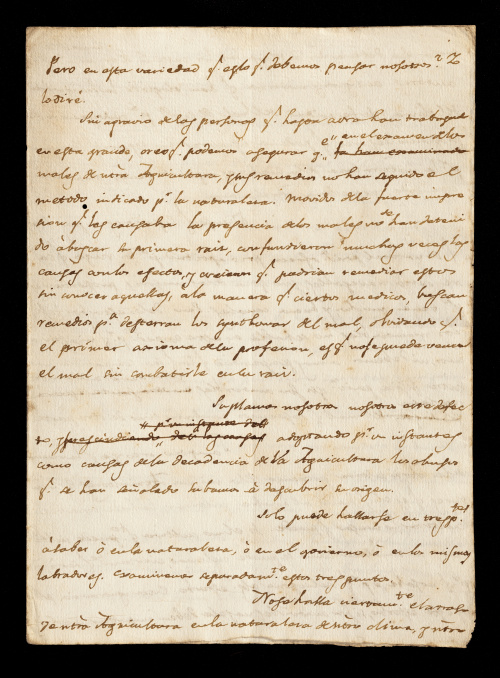 Pero en esta variedad q.e es lo q.e debemos pensar nosotros? 2
lo diré.
Sin agravio de las personas q.e hasta aora han trabajado
en esta grande, creo q.e podemos asegurar q.e en el examen de los
males de ntra Agricultura, y sus remedios no han seguido el
metodo indicado p.r la naturaleza. Movidos de la fuerte impre
sion q.e les causaba la presencia de los males no se han deteni
do a buscar su primera raiz, confundieron muchas veces las
causas con los efectos, y creieron q.e podrian remediar estos
sin conocer aquellas, a la manera q.e ciertos medicos, buscan
remedios p.a desterrar los synthomas del mal, olvidando q.e
el primer axioma de la profesion, es q.e no se puede vencer
el mal sin combatirle en la raiz.
Suplamos nosotros nosotros este defec
to, adoptando p.r un instante
como causas de la decadencia de la Agricultura los abusos
q.e se han señalado subamos à descubrir su origen.
Solo puede hallarse en tres p.tos
à saber ò en la naturaleza, ò en el govierno, ò en los mismos
labradores. Examinemos separadam.te estos tres puntos.
No se halla ciertam.te el atraso
de ntra Agricultura en la naturaleza de ntro clima, y ntro